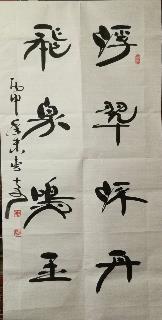 浮翠流丹
飛泉鳴玉
丙申